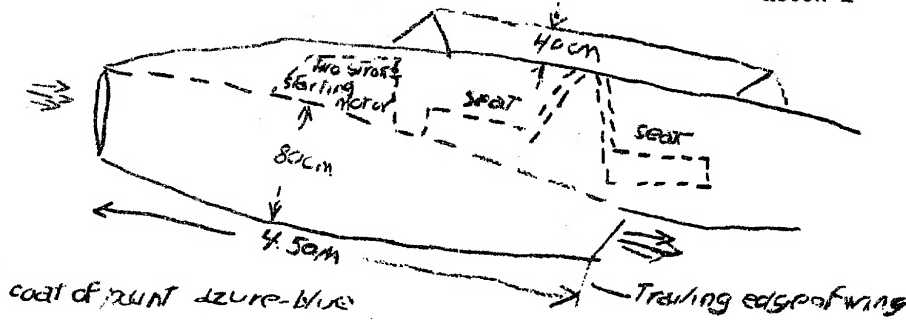 40cm
Two stroke
starting
motor
seat
seat
80cm
4.50m
coat of paint azure-blue
Trailing edge of wing